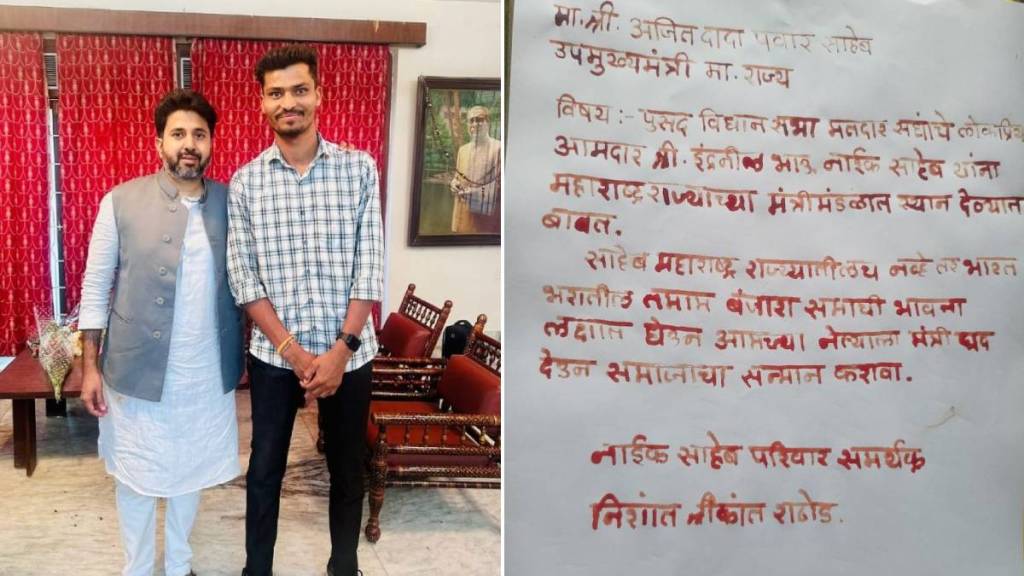 मा. श्री. अजित दादा पवार साहेब
उपमुख्यमंत्री मा. राज्य
विषय :- पुसद विधान सभा मतदार संघाचे लोकप्रिय
आमदार श्री. इंद्रनील भाऊ नाईक साहेब यांना
महाराष्ट्र राज्याच्या मंत्रीमंडळात स्थान देण्यात
बाबत.
साहेब महाराष्ट्र राज्यातीलच नव्हे तर भारत
भरातील तमाम बंजारा समाची भावना
लक्षात घेउन आमच्या नेत्याला मंत्री पद
देउन समाजाचा सन्मान करावा.
नाईक साहेब परिवार समर्थक
निशांत श्रीकांत राठोड.